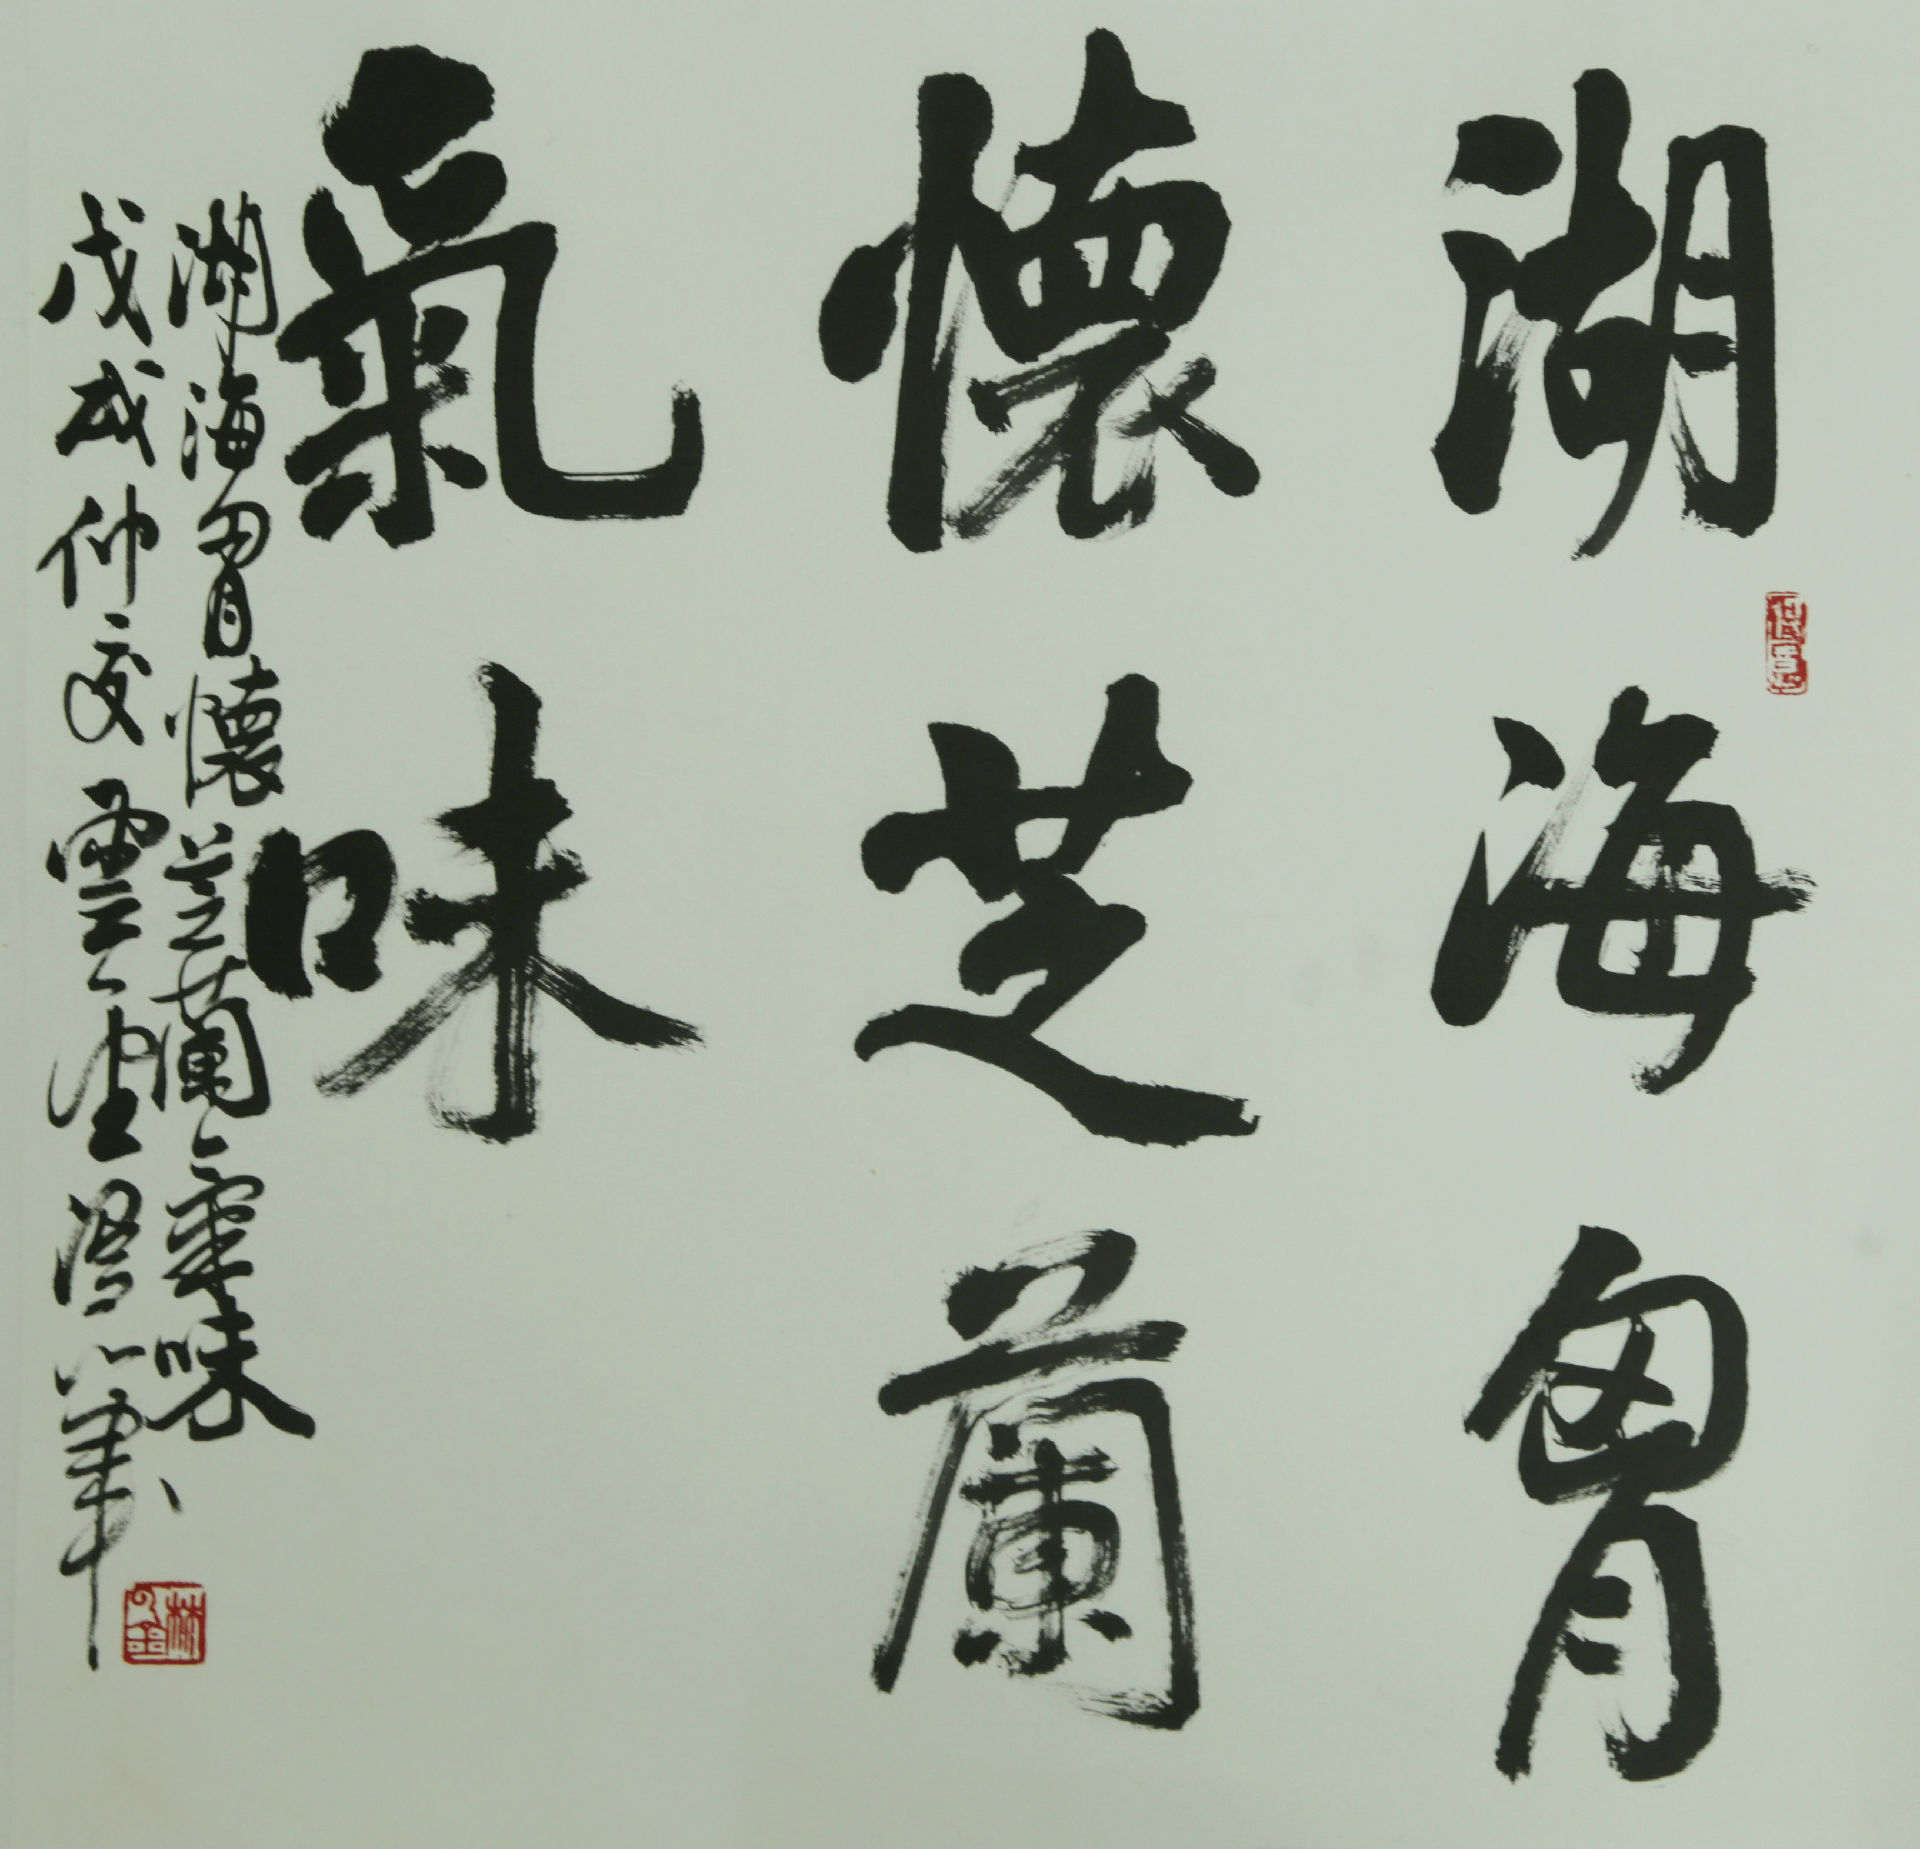 湖海胷
懷芝蘭
氣味
湖海胷懷芝蘭氣味
戊戌仲夏雲生